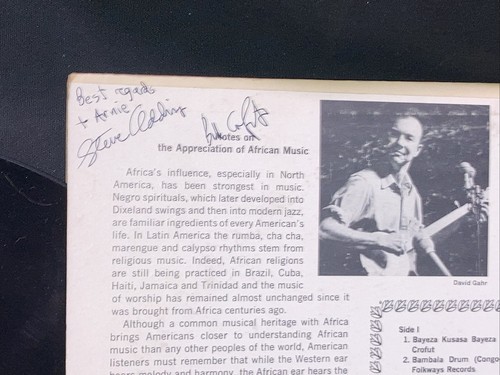 Best regards
to Arnie
Steve Addiss
Bill Crofut
Notes on
the Appreciation of African Music
Africa's influence, especially in North
America, has been strongest in music.
Negro spirituals, which later developed into
Dixeland swings and then into modern jazz,
are familiar ingredients of every American's
life. In Latin America the rumba, cha cha,
marengue and calypso rhythms stem from
religious music. Indeed, African religions
are still being practiced in Brazil, Cuba,
Haiti, Jamaica and Trinidad and the music
of worship has remained almost unchanged since it
was brought from Africa centuries ago.
Although a common musical heritage with Africa
brings Americans closer to understanding African
music than any other peoples of the world, American
listeners must remember that while the Western ear
hears melody and harmony, the African ear hears the
David Gahr
Side I
1. Bayeza Kusasa Bayeza
Crofut
2. Bambala Drum (Congo
Folkways Records.